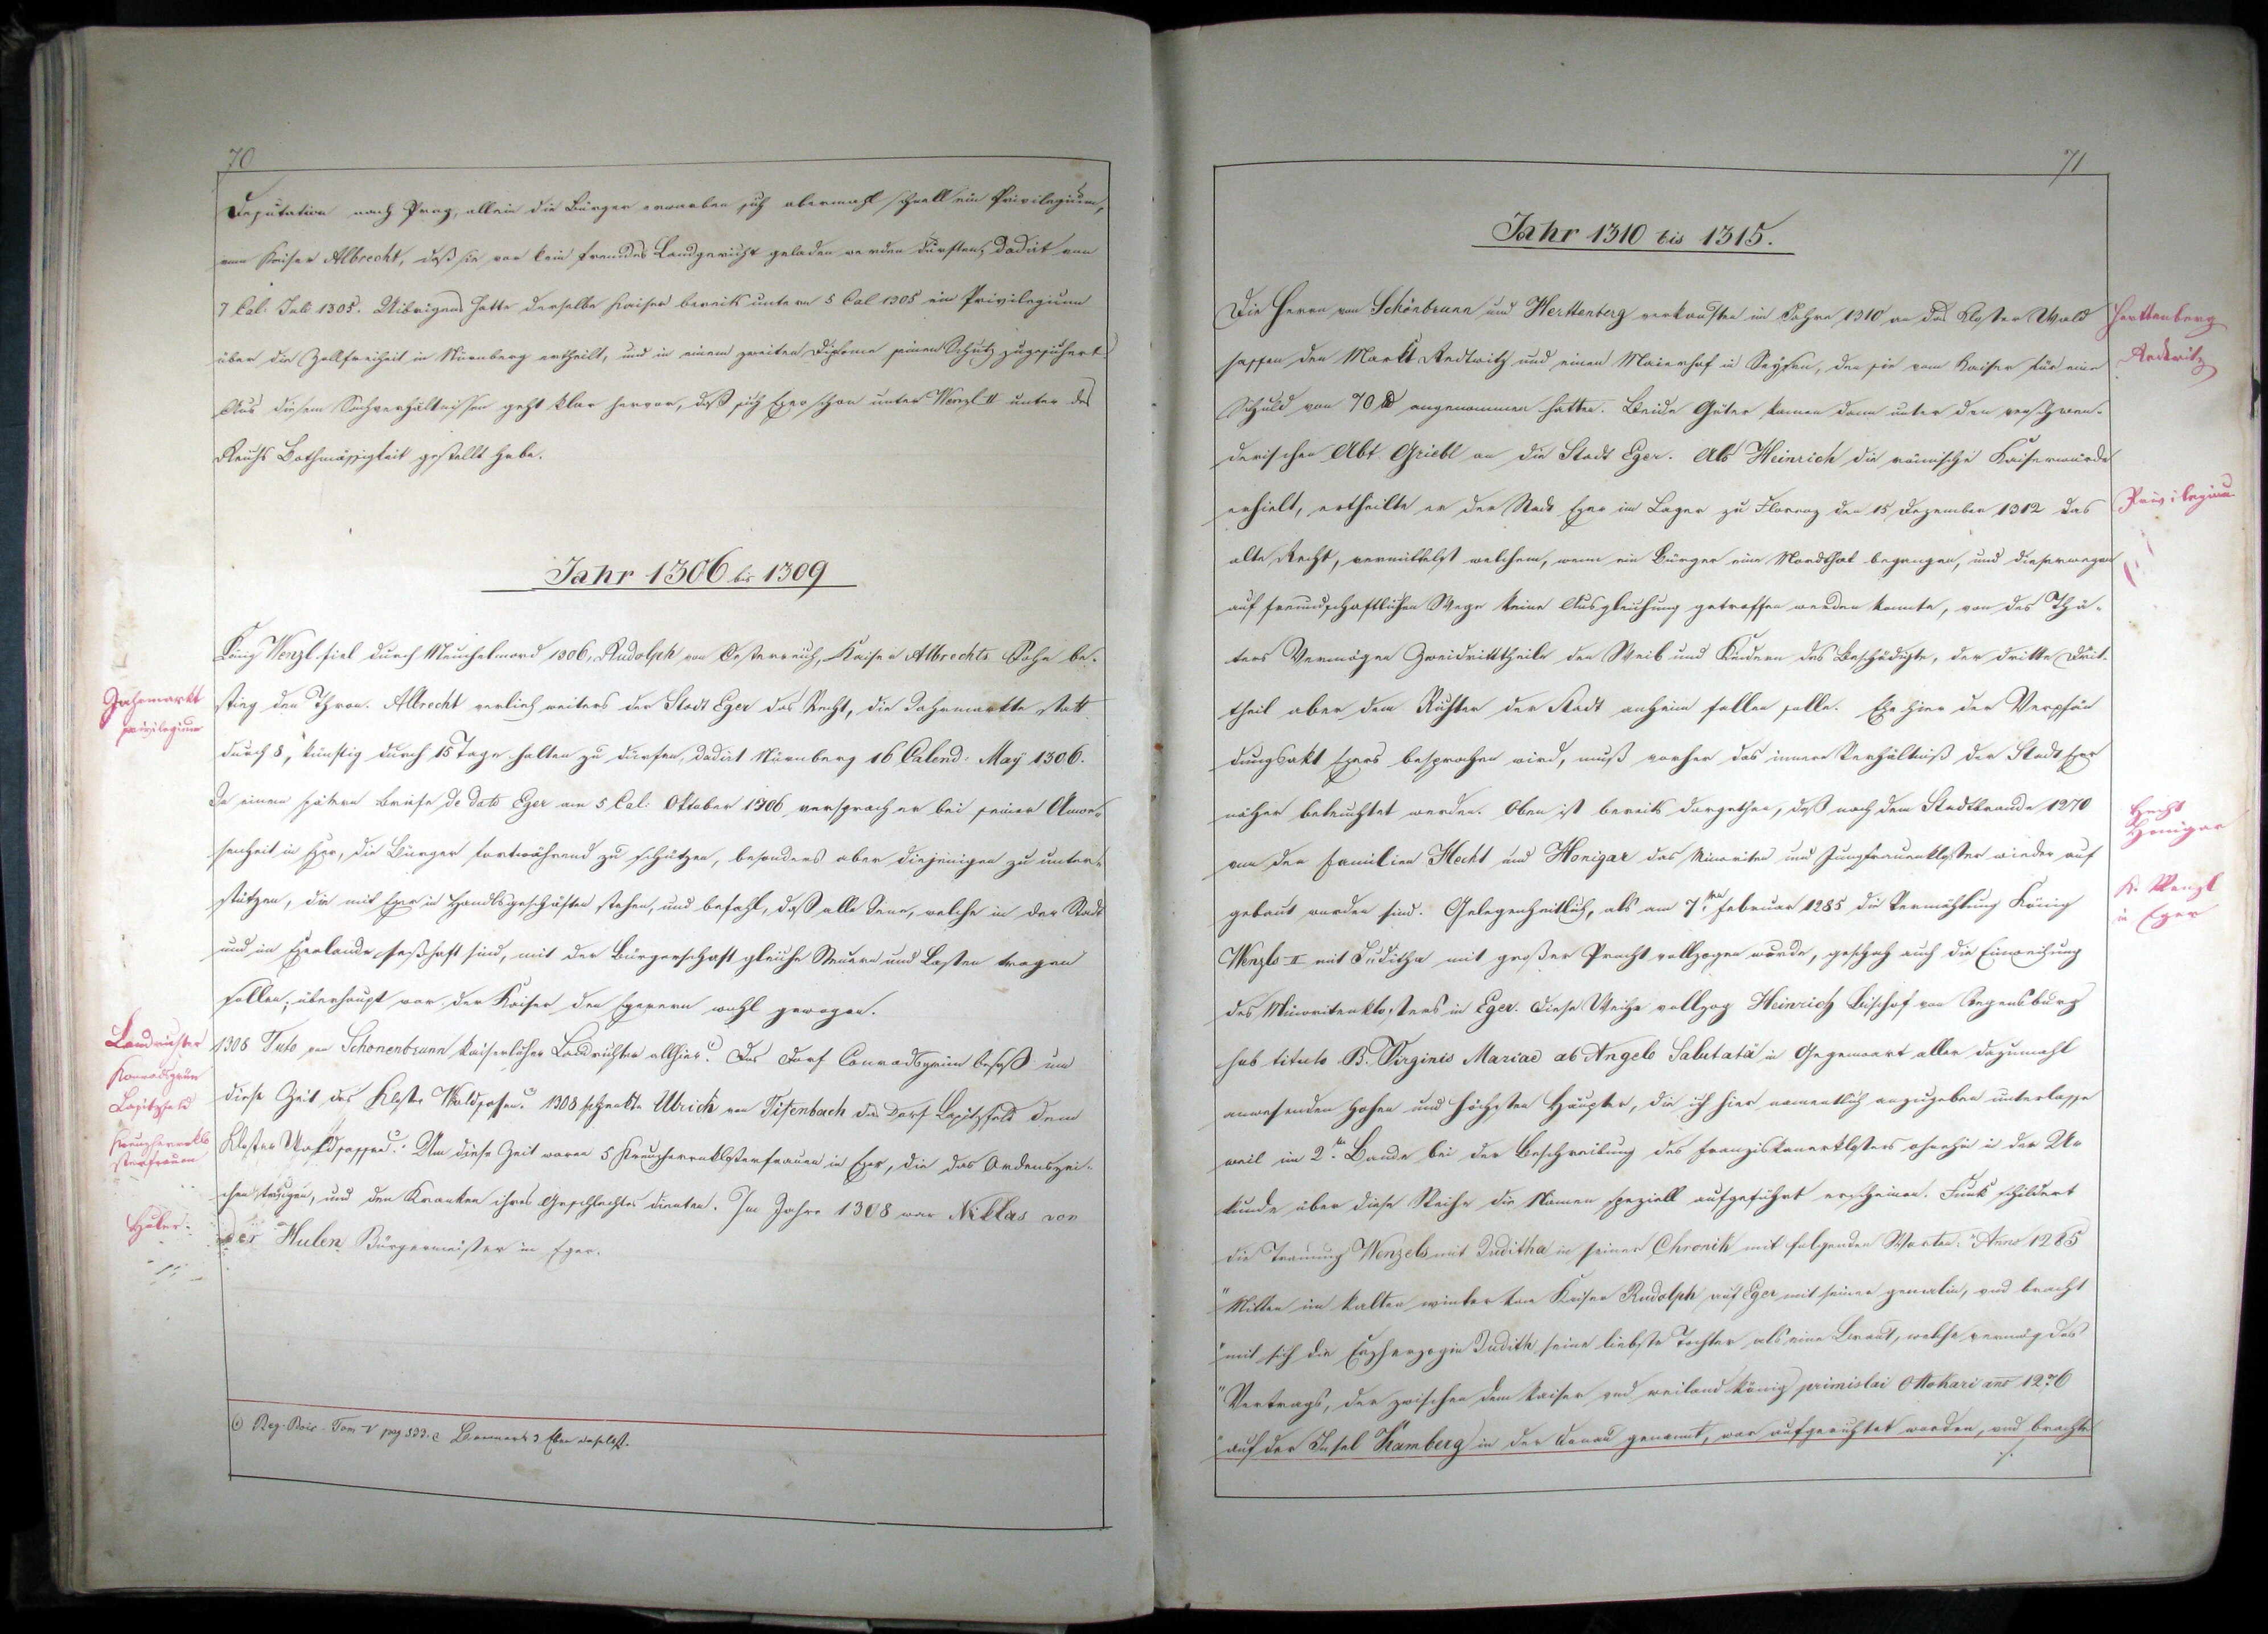 70
Deputation nach Prag, allein die Bürger erwarben sich abermahl schnell ein Privilegium,
vom Kaiser Albrecht, daß sie vor kein fremdes Landgericht geladen werden dürften, dadirt von
7 Cal. Juli 1305. Uibrigens hatte derselbe Kaiser bereits unterm 5 Cal 1305 ein Privilegium
über die Zollfreiheit in Nürnberg ertheilt, und in einem zweiten Diplome seinen Schutz zugesichert.
Aus diesem Sachverhältnissen geht klar hervor, daß sich Eger schon unter Wenzl II unter des
Reichs Bothmässigkeit gestellt habe.
Jahr 1306 bis 1309
König Wenzl fiel durch Meuchelmord 1306, Rudolph von Oesterreich, Kaiser Albrechts Sohn be-
Jahrmarkt
privilegium
stieg den Thron. Albrecht verlieh weiters der Stadt Eger das Recht, die Jahrmarkte statt
durch 8, künftig durch 15 Tage halten zu dürfen, dadirt Nürnberg 16 Calend: May 1306.
In einem spätern Briefe de dato Eger am 5 Cal: Oktober 1306 versprach er bei seiner Anwe-
senheit in Eger, die Bürger fortwährend zu schützen, besonders aber diejenigen zu unter-
stützen, die mit Eger in Handlsgeschäften stehen, und befahl, daß alle Jene, welche in der Stadt
und im Egerlande seßhaft sind, mit der Bürgerschaft gleiche Steuern und Lasten tragen
sollen; überhaupt war der Kaiser den Egerern wohl gewogen.
Landrichter
1308 Tuto von Schonenbrunn kaiserlicher Landrichter allhier. Das Dorf Conradsgrün besaß um
Konradsgrün
Lapitzfeld
diese Zeit das Kloster Waldsassen. 1308 schenkte Ulrich von Tifenbach das Dorf Lapitzfeld dem
Kreuzherrnklo
sterfrauen
Kloster Waldsassen. Um diese Zeit waren 5 Kreuzherrnklosterfrauen in Eger, die das Ordenszei-
chen trugen, und den Kranken ihres Geschlechtes dienten. Im Jahre 1308 war Niklas von
Huler.
der Hulen Bürgermeister in Eger.
Reg. Boic. Tom V pag 133. Eben daselbst.
71
Jahr 1310 bis 1315.
Die Herrn von Schönbrunn und Herttenberg verkauften im Jahre 1310 an das Kloster Wald
Herttenberg
Redtwitz
sassen den Markt Redtwitz und einen Maierhof in Seyßen, den sie vom Kaiser für eine
Schuld von 70 ℔ angenommen hatten. Beide Güter kamen dann unter den verschwen-
derischen Abt Griebl an die Stadt Eger. Als Heinrich die römische Kaiserwürde
erhielt, ertheilte er der Stadt Eger im Lager zu Florenz den 15 Dezember 1312 das
Privilegium
alte Recht, vermittelst welchem, wenn ein Bürger eine Mordthat begangen, und dieserwegen
auf freundschaftlichen Wege keine Ausgleichung getroffen werden konnte, von des Thä-
ters Vermögen Zweidrittheile den Weib und Kindern des Beschädigte, der dritte Drit-
theil aber dem Richter der Stadt anheim fallen solle. Ehe hier der Verpfän
dungsakt Egers besprochen wird, muß vorher das innere Verhältniß der Stadt Eger
näher beleuchtet werden. Oben ist bereits dargethan, daß nach dem Stadtbrande 1270
Hecht
Honigar
von den Familien Hecht und Honigar das Minoriten und Jungfrauenkloster wieder auf
gebaut worden sind. Gelegenheitlich, als am 7ten Februar 1285 die Vermählung König
K. Wenzl
in Eger
Wenzls II mit Juditha mit großer Pracht vollzogen wurde, geschah auch die Einweihung
des Minoritenklosters in Eger. Diese Weihe vollzog Heinrich Bischof von Regensburg
sub titulo B. Virginis Mariae ab Angelo Salutatä in Gegenwart aller dazumahl
anwesenden hohen und höchsten Häupter, die ich hier namentlich anzugeben unterlasse
weil im 2ten Bande bei der Beschreibung des Franziskanerklosters ohnehin in der Ur
kunde über diese Weihe die Namen speziell aufgeführt erscheinen. Funk schildert
die Trauung Wenzels mit Juditha in seiner Chronik mit folgenden Worten: "Anno 1285
"Mitten im kalten winter kam Kaiser Rudolph auf Eger mit seiner gemalin, und bracht
"mit sich die Erzherzogin Judith seine liebste Tochter als eine Braut, welche vermög des
"Vertrags, der zwischen dem Kaiser und weiland König primislai Ottokari ano 1276
"auf der Insel Kamberg in der Donau genannt, war aufgerichtet worden, und brachte
./.